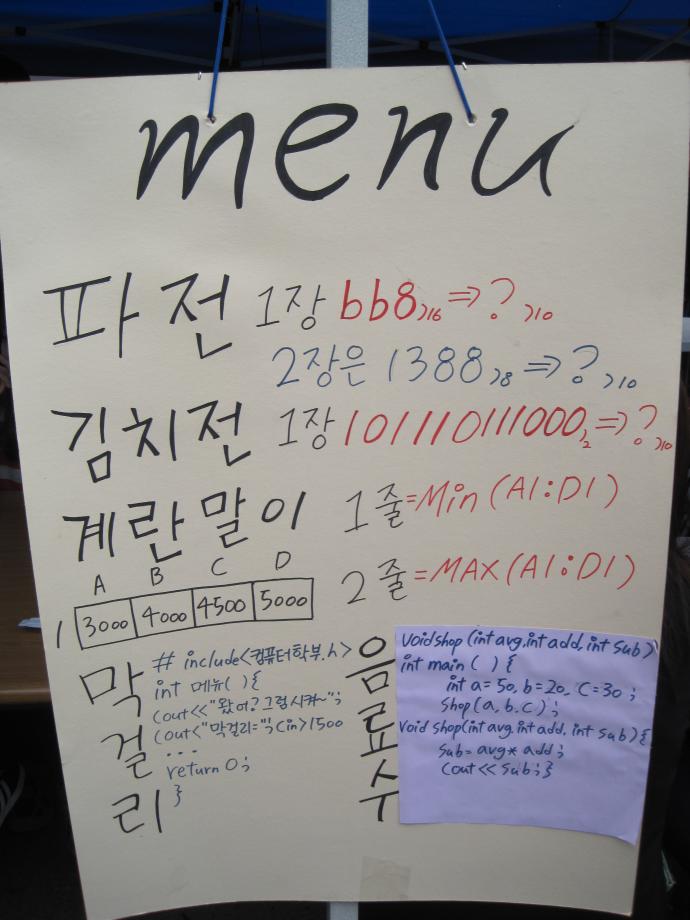 menu
파전 1장 bb8)16 ⇒ ? )10
2장은 1388)8 ⇒ ? )10
김치전 1장 101110111000)2 ⇒ ? )10
계란말이 1줄=Min(A1:D1)
2줄=MAX(A1:D1)
A B C D
1 3000 4000 4500 5000
막걸리
# include<컴퓨터학부.h>
int 메뉴( ){
cout<<"왔어? 그럼시켜~";
cout<"막걸리=";cin>1500
...
return 0;
}
음료수
void shop (int avg, int add, int sub)
int main ( ) {
int a=50, b=20, C=30 ;
shop (a, b, c) ;
void shop(int avg, int add, int sub){
sub= avg* add ;
cout << sub ; }